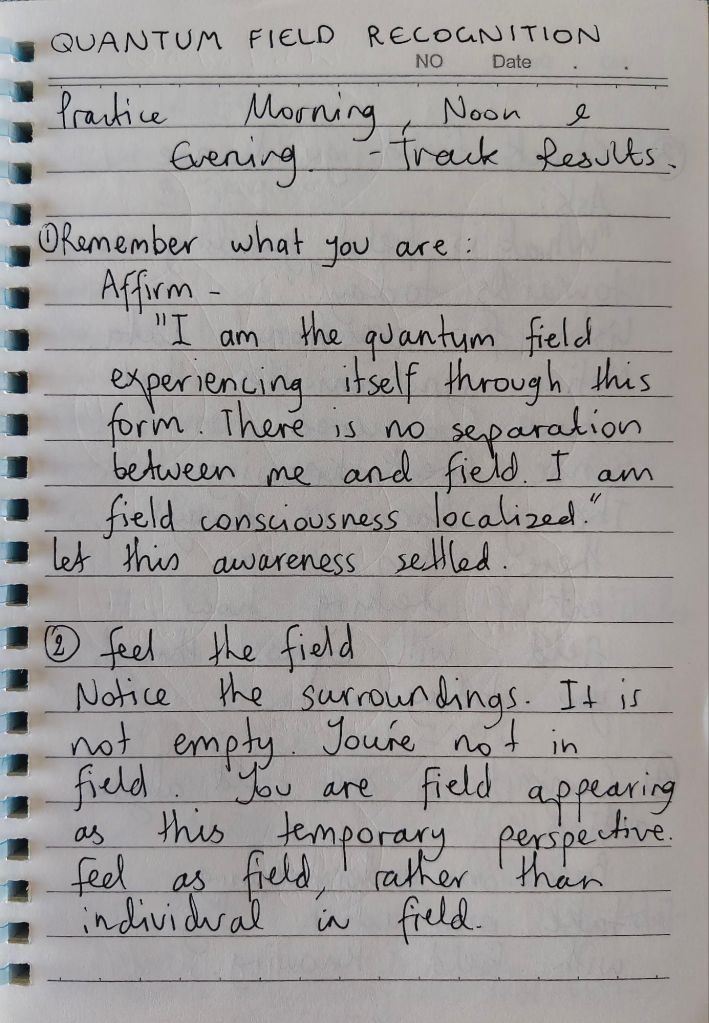 QUANTUM FIELD RECOGNITION
NO Date . .
Practice Morning, Noon &
Evening. - Track Results.
① Remember what you are:
Affirm -
"I am the quantum field
experiencing itself through this
form. There is no separation
between me and field. I am
field consciousness localized."
let this awareness settled.
② feel the field
Notice the surroundings. It is
not empty. You're not in
field. You are field appearing
as this temporary perspective.
feel as field, rather than
individual in field.